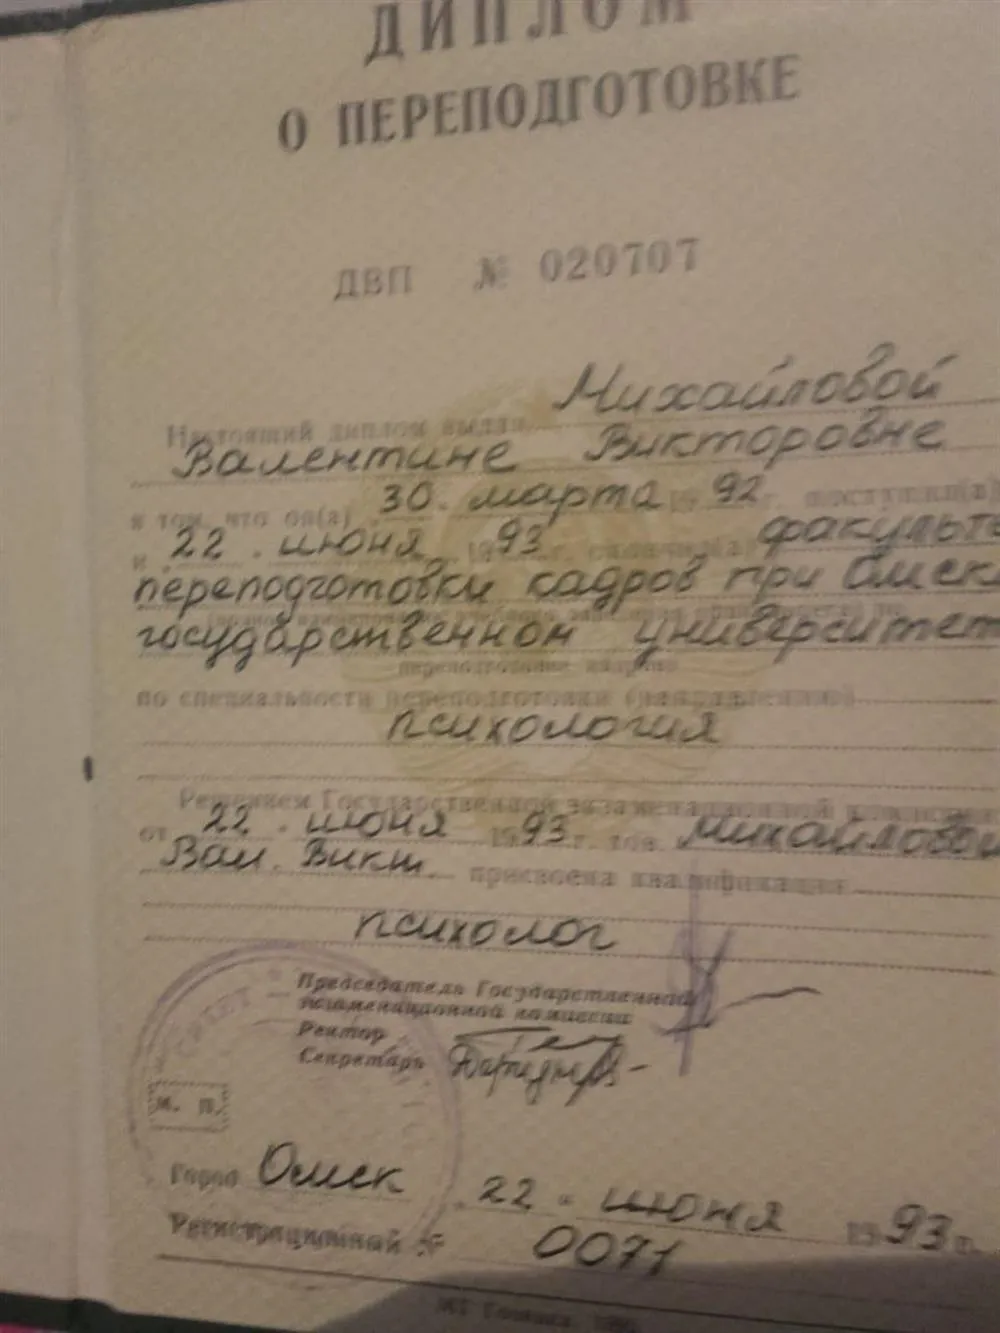 ДИПЛОМ
О ПЕРЕПОДГОТОВКЕ
ДВП № 020707
Михайловой
Настоящий диплом выдан
Валентине Викторовне
в том, что он(а) 30. марта 1992 г. поступил(а)
и 22. июня 1993 г. окончил(а) факульте
переподготовки кадров при Омск
государственном университет
переподготовке кадров
по специальности переподготовки (направлению)
психология
Решением Государственной экзаменационной комиссии
от 22. июня 1993 г. тов. Михайловой
Вал. Викт. присвоена квалификация
психолог
Председатель Государственной
экзаменационной комиссии
Ректор
Секретарь
М. П.
Город Омск 22 " июня 1993 г.
Регистрационный № 0071